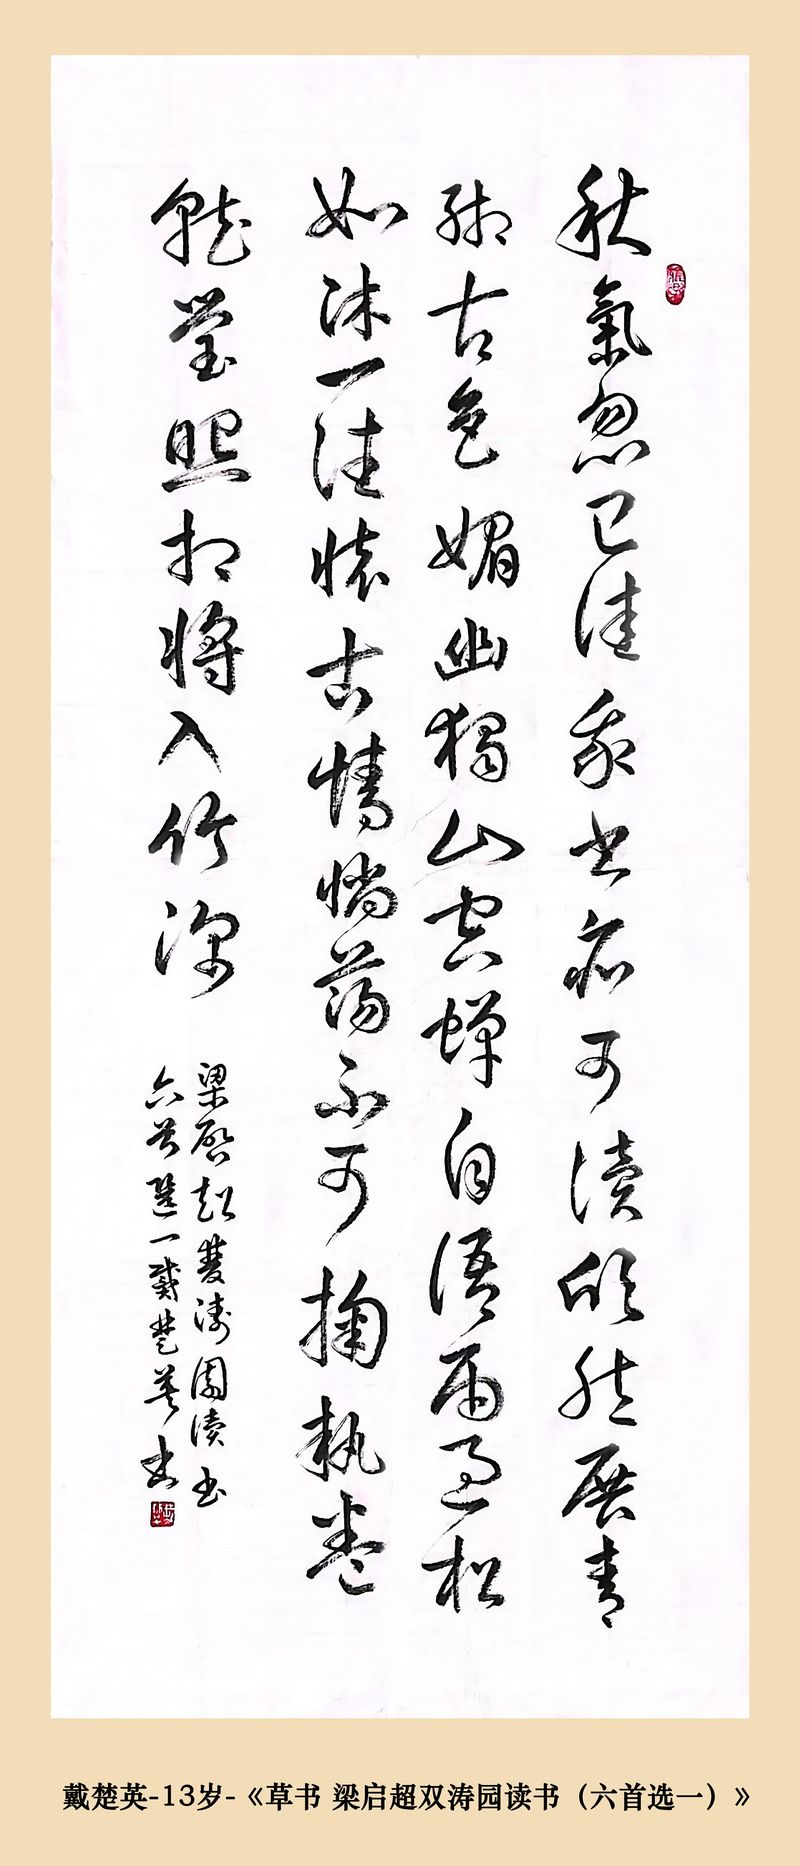 秋氣忽已佳我書亦可讀欣然展青
緗古色媚幽獨山空蟬自語雨過松
如沐一往懷古情惝蕩不可掬執卷
就瑩照相將入竹深
梁啟超雙濤園讀書
六首選一戴楚英書
戴楚英-13岁-《草书 梁启超双涛园读书（六首选一）》